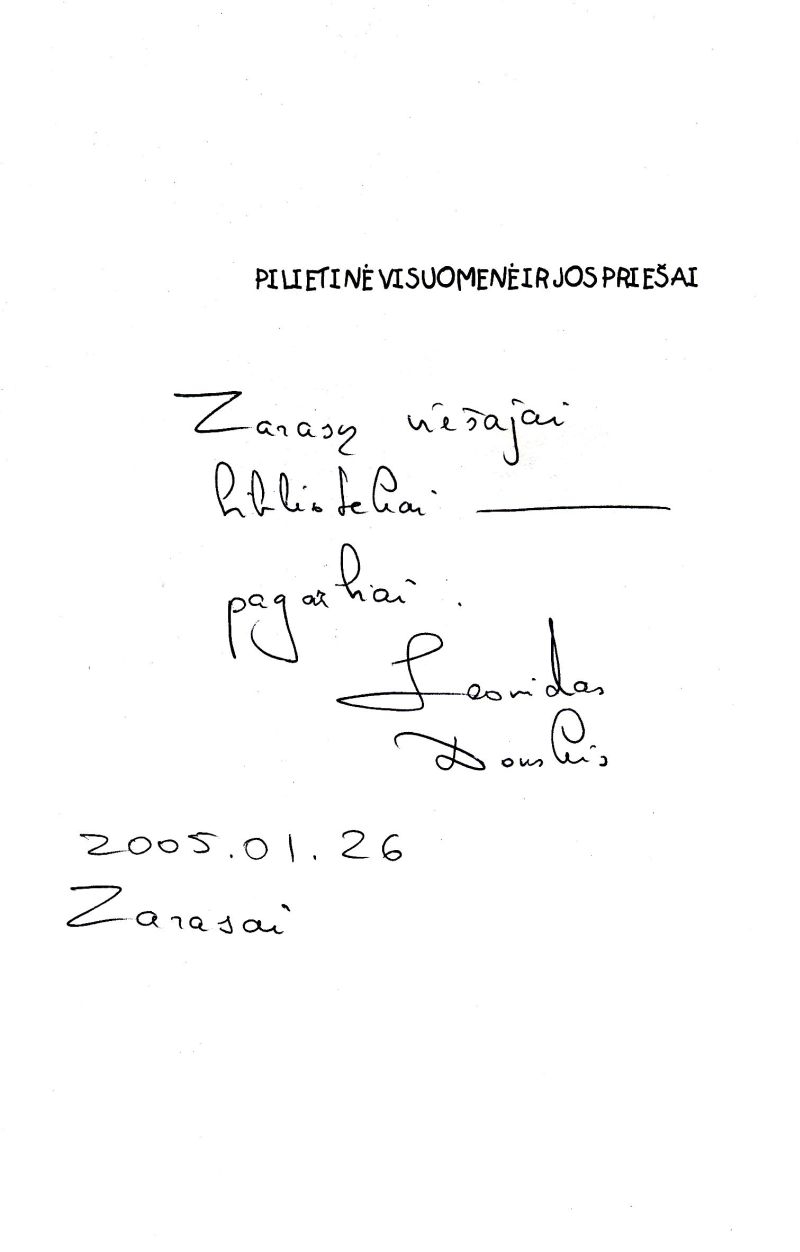 PILIETINĖ VISUOMENĖ IR JOS PRIEŠAI
Zarasų viešajai
bibliotekai
pagarbiai.
Leonidas
Donskis
2005.01.26
Zarasai